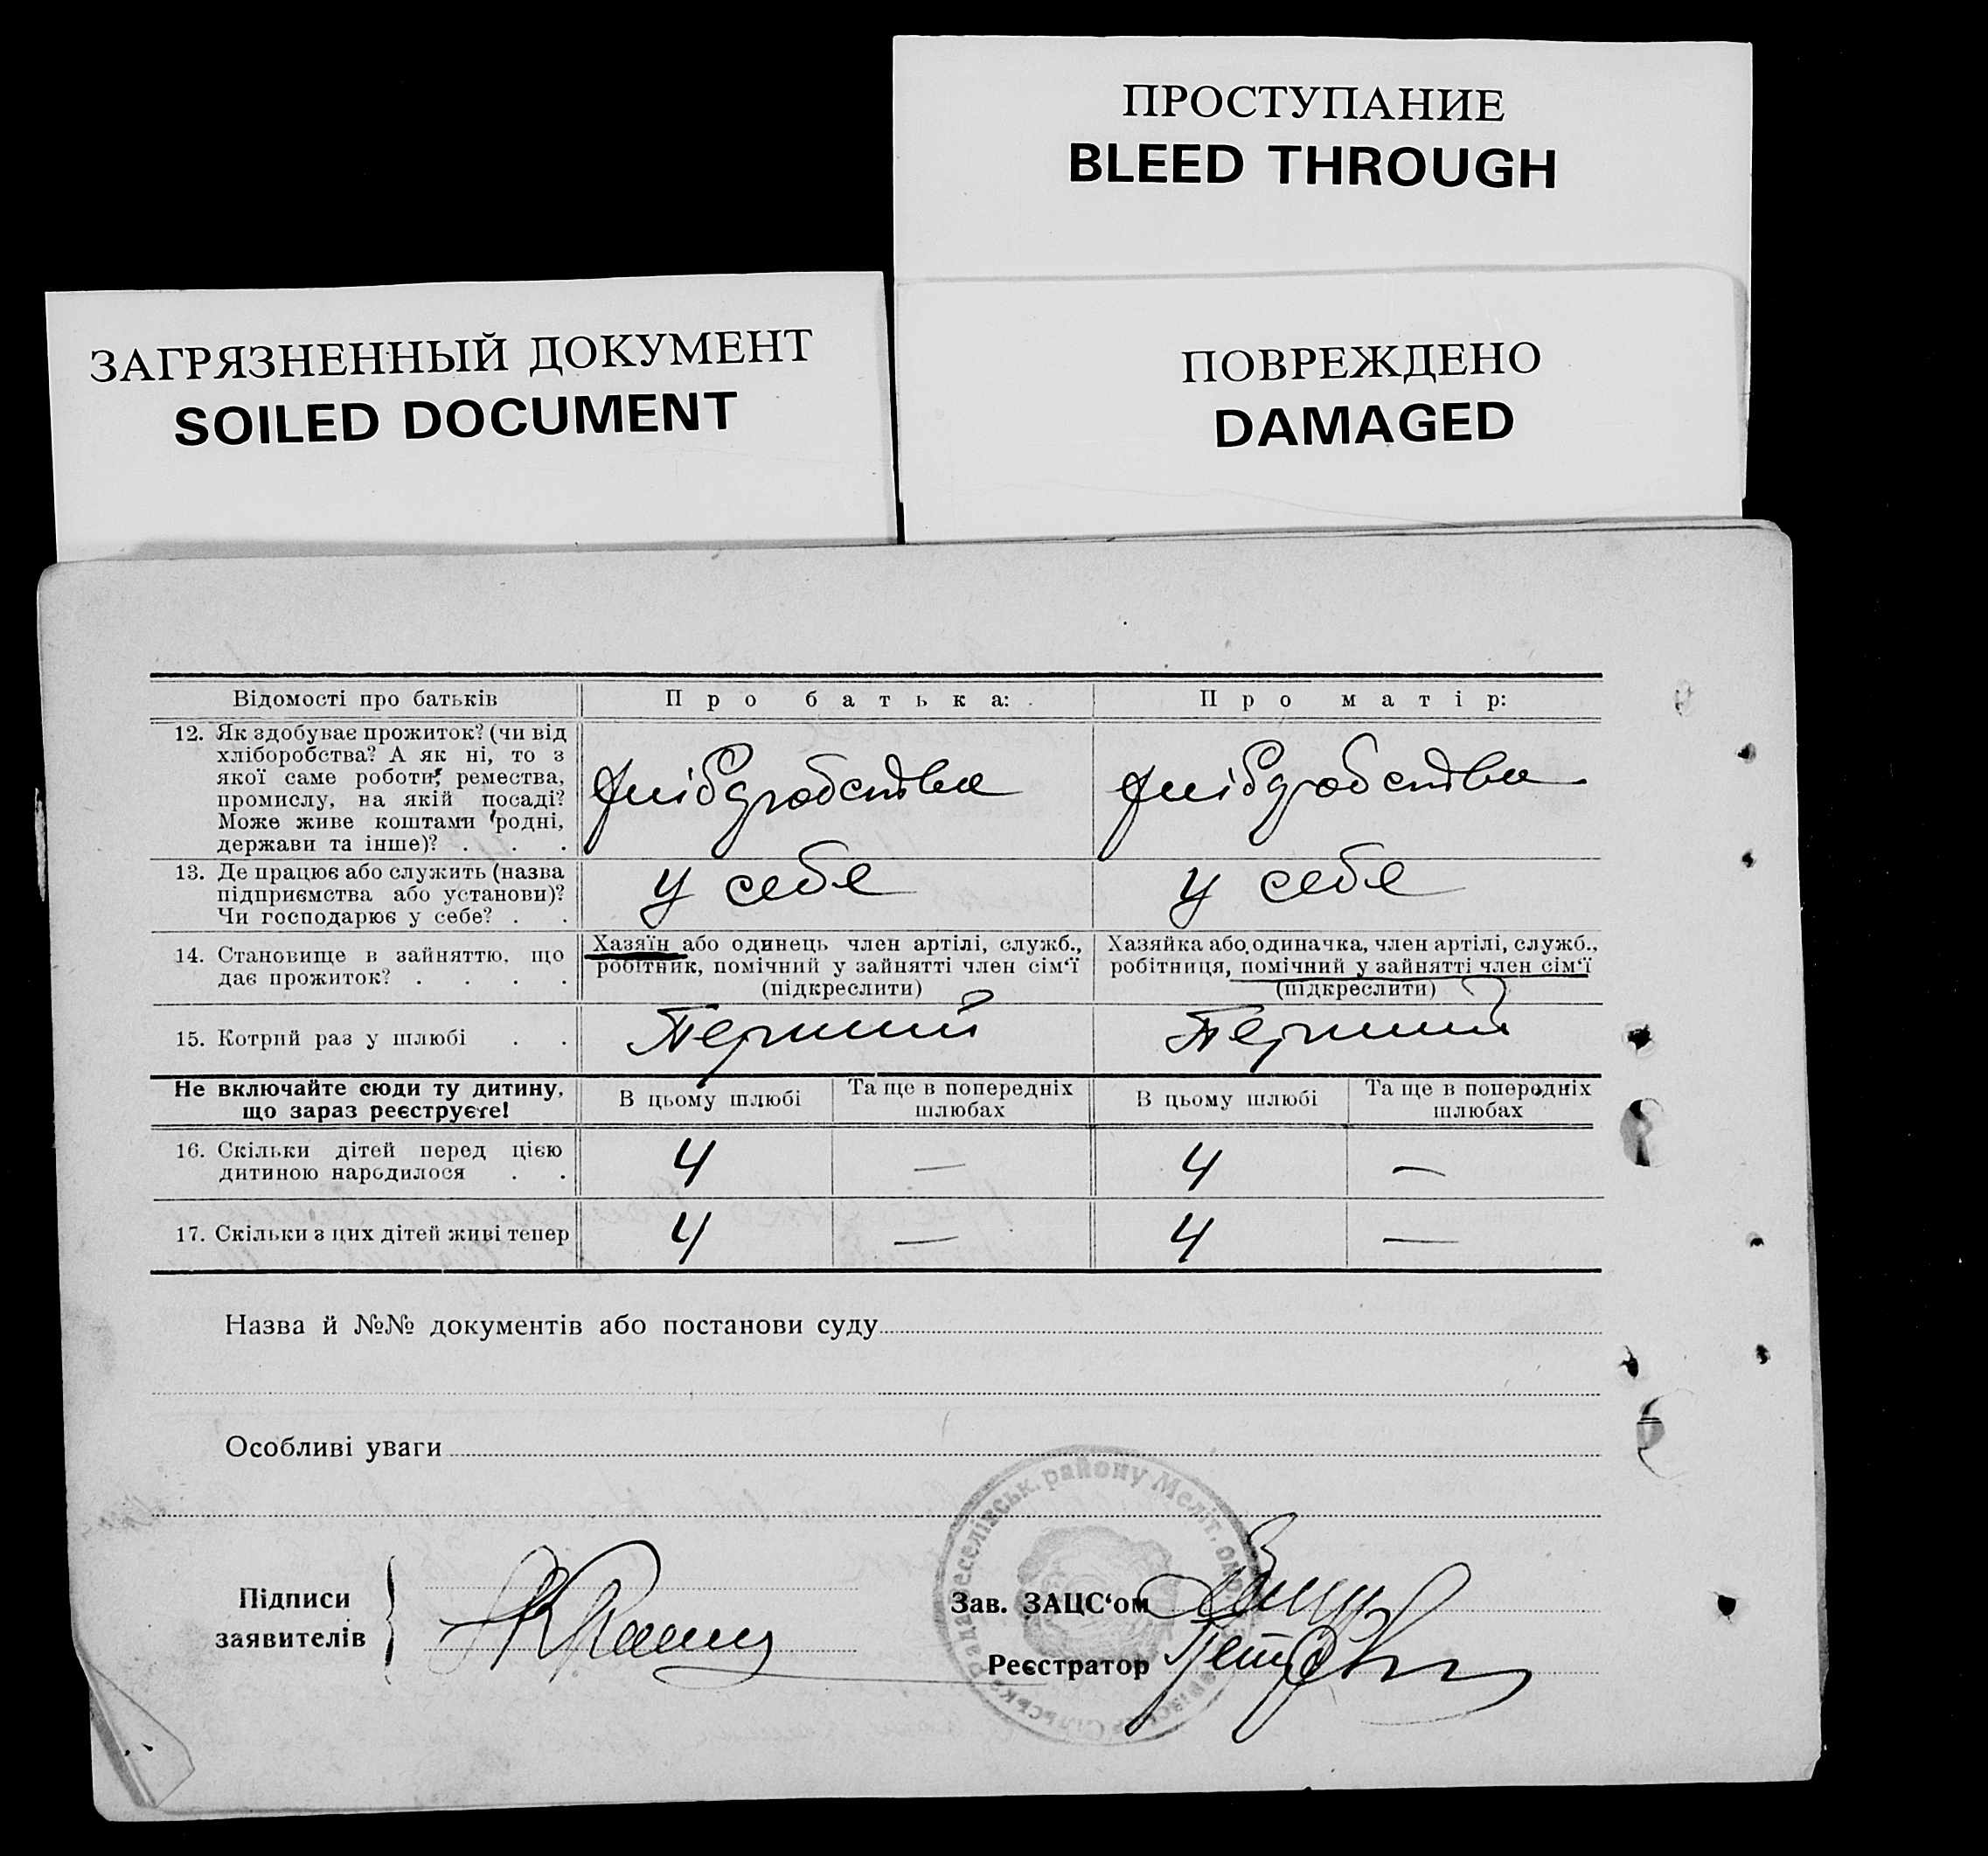 ПРОСТУПАНИЕ
BLEED THROUGH
ЗАГРЯЗНЕННЫЙ ДОКУМЕНТ
SOILED DOCUMENT
ПОВРЕЖДЕНО
DAMAGED
Відомості про батьків
Про батька:
Про матір:
12. Як здобуває прожиток? (чи від
хліборобства? А як ні, то з
якої саме роботи, ремества,
промислу, на якій посаді?
Може живе коштами родні,
держави та інше)? . . .
хліборобства
хліборобства
13. Де працює або служить (назва
підприємства або установи)?
Чи господарює у себе? . .
у себе
у себе
14. Становище в зайняттю, що
дає прожиток? . . . .
Хазяїн або одинець член артілі, служб.,
робітник, помічний у зайнятті член сім‘ї
(підкреслити)
Хазяйка або одиначка, член артілі, служб.,
робітниця, помічний у зайнятті член сім‘ї
(підкреслити)
15. Котрий раз у шлюбі . .
Перший
Перший
Не включайте сюди ту дитину,
що зараз реєструєте!
В цьому шлюбі
Та ще в попередніх
шлюбах
В цьому шлюбі
Та ще в попередніх
шлюбах
16. Скільки дітей перед цією
дитиною народилося . .
4 — 4 —
17. Скільки з цих дітей живі тепер
4 — 4 —
Назва й №№ документів або постанови суду
Особливі уваги
Підписи
заявителів
Зав. ЗАЦС‘ом
Реєстратор
веселівськ. району Меліт. окр.
Сільська Рада